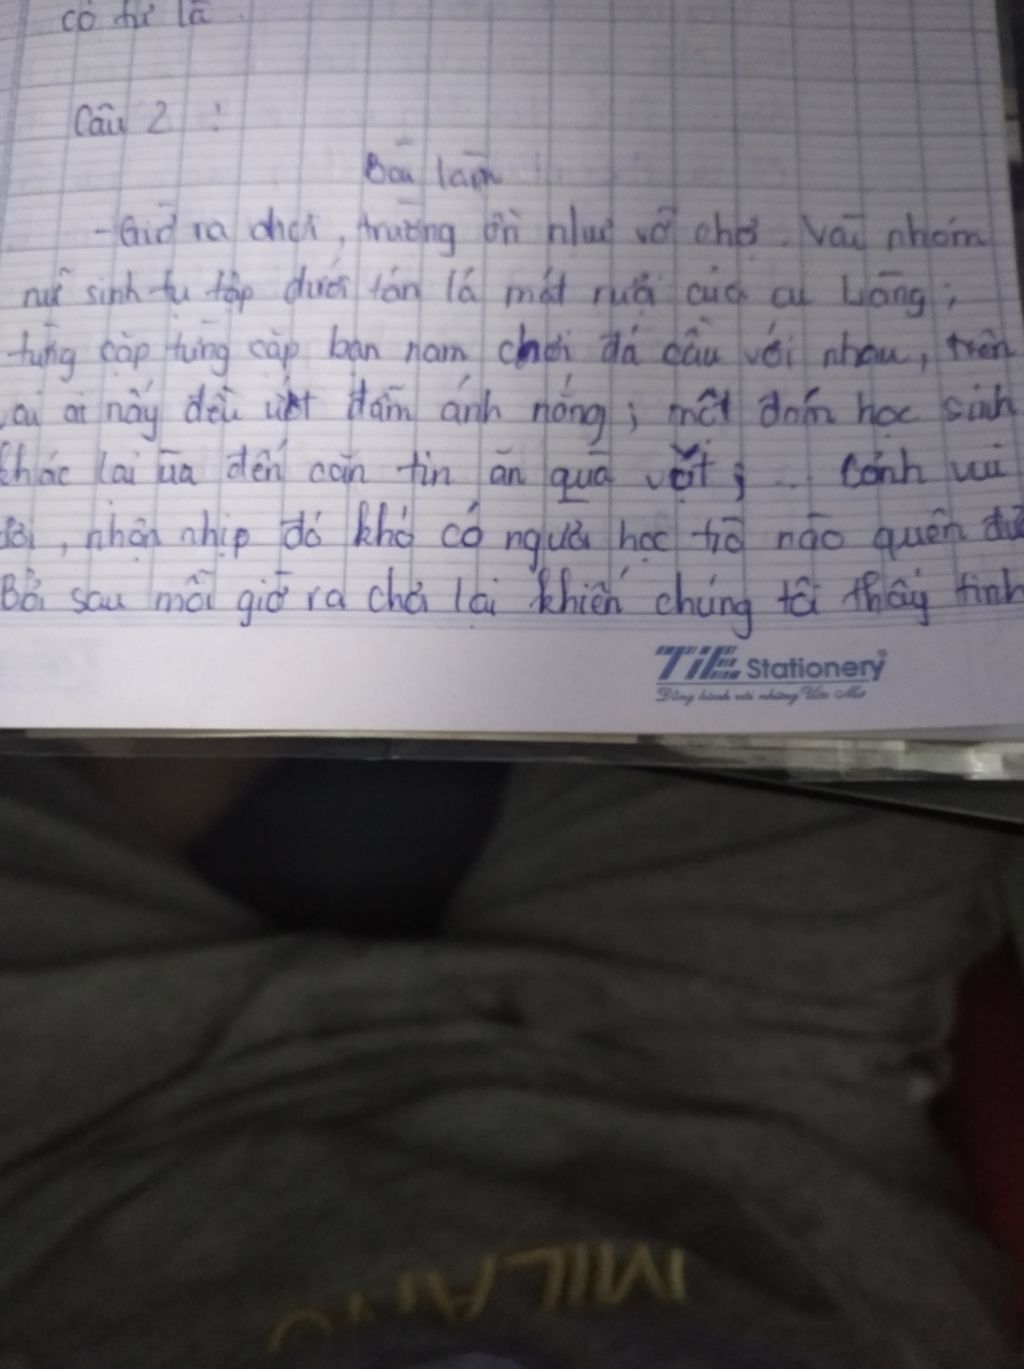 có từ là
Câu 2 :
Bài làm :
- Giờ ra chơi, trường ồn như vỡ chợ. Vài nhóm
nữ sinh tụ tập dưới tán lá mát rượi của cây bàng;
từng cặp từng cặp bạn nam chơi đá cầu với nhau, trên
ai ai nấy đều ướt đẫm ánh nắng; một đám học sinh
khác lại ùa đến căn tin ăn quà vặt; ... Cảnh vui
tươi, nhộn nhịp đó khó có người học trò nào quên
Bởi sau mỗi giờ ra chơi lại khiến chúng tôi thấy tinh
TiE Stationery
Đồng hành với những Ước Mơ
MILANO